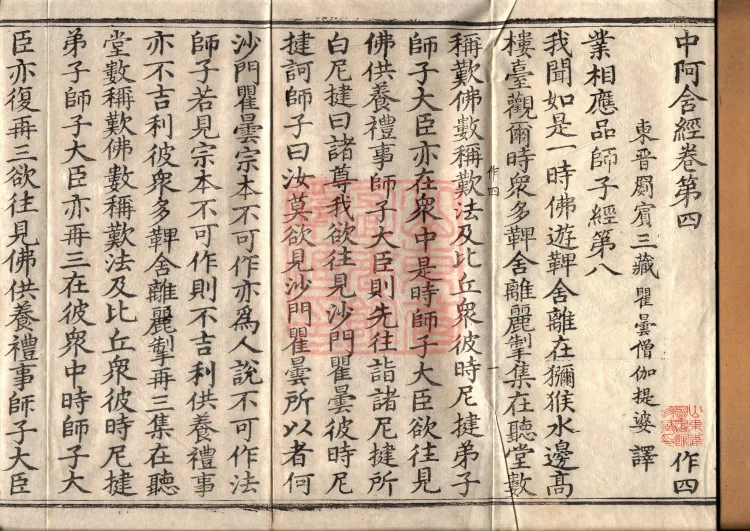 中阿含經卷第四
作四
東晉罽賓三藏瞿曇僧伽提婆譯
業相應品師子經第八
我聞如是一時佛遊鞞舍離在獼猴水邊高
樓臺觀爾時衆多鞞舍離麗掣集在聽堂數
作四
一
稱歎佛數稱歎法及比丘衆彼時尼揵弟子
師子大臣亦在衆中是時師子大臣欲往見
佛供養禮事師子大臣則先往詣諸尼揵所
白尼揵曰諸尊我欲往見沙門瞿曇彼時尼
揵訶師子曰汝莫欲見沙門瞿曇所以者何
沙門瞿曇宗本不可作亦爲人說不可作法
師子若見宗本不可作則不吉利供養禮事
亦不吉利彼衆多鞞舍離麗掣再三集在聽
堂數稱歎佛數稱歎法及比丘衆彼時尼揵
弟子師子大臣亦再三在彼衆中時師子大
臣亦復再三欲往見佛供養禮事師子大臣